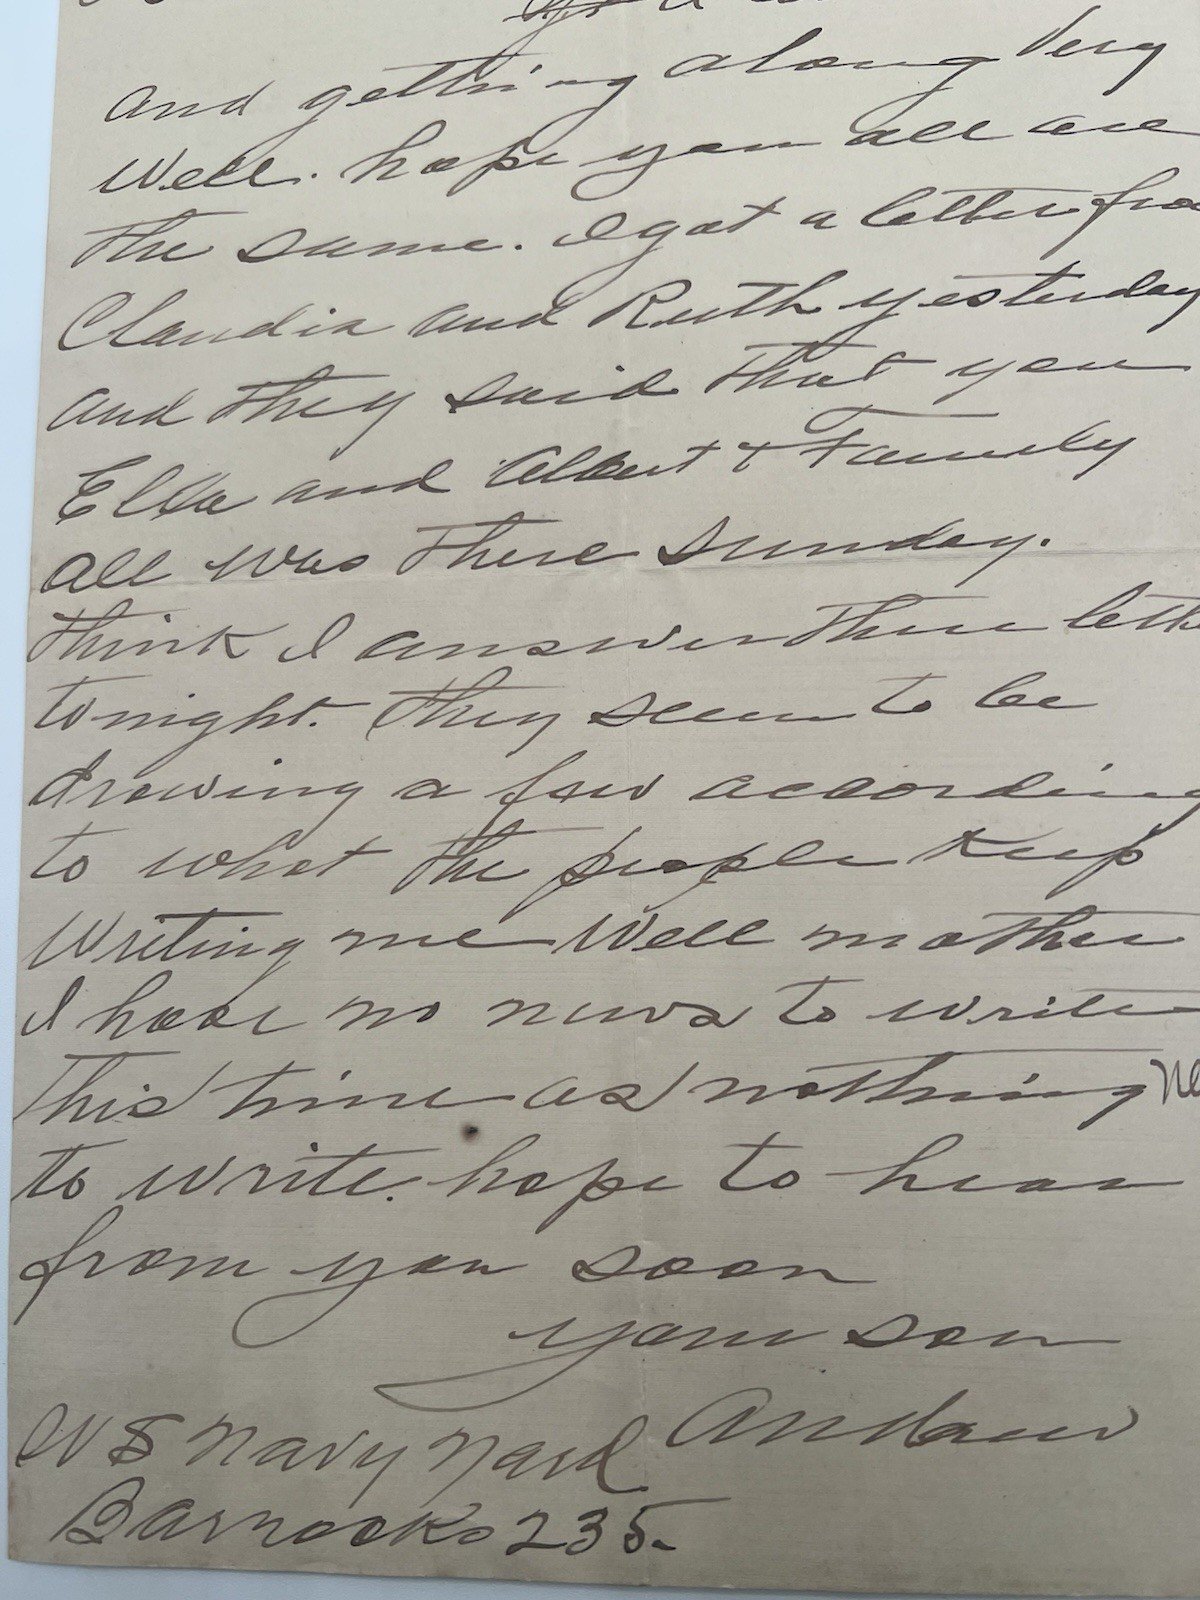 and getting along Very
Well. hope you all are
the same. I got a letter from
Claudia and Ruth yesterday
and they said that you
Ella and Albert + Family
all was there Sunday.
think I answer there
tonight. They seem to be
drawing a few according
to what the people keep
Writing me Well mother
I have no news to write
this time as nothing
to write. hope to hear
from you soon
your son
Andrew
U S Navy Yard
Barracks 235.